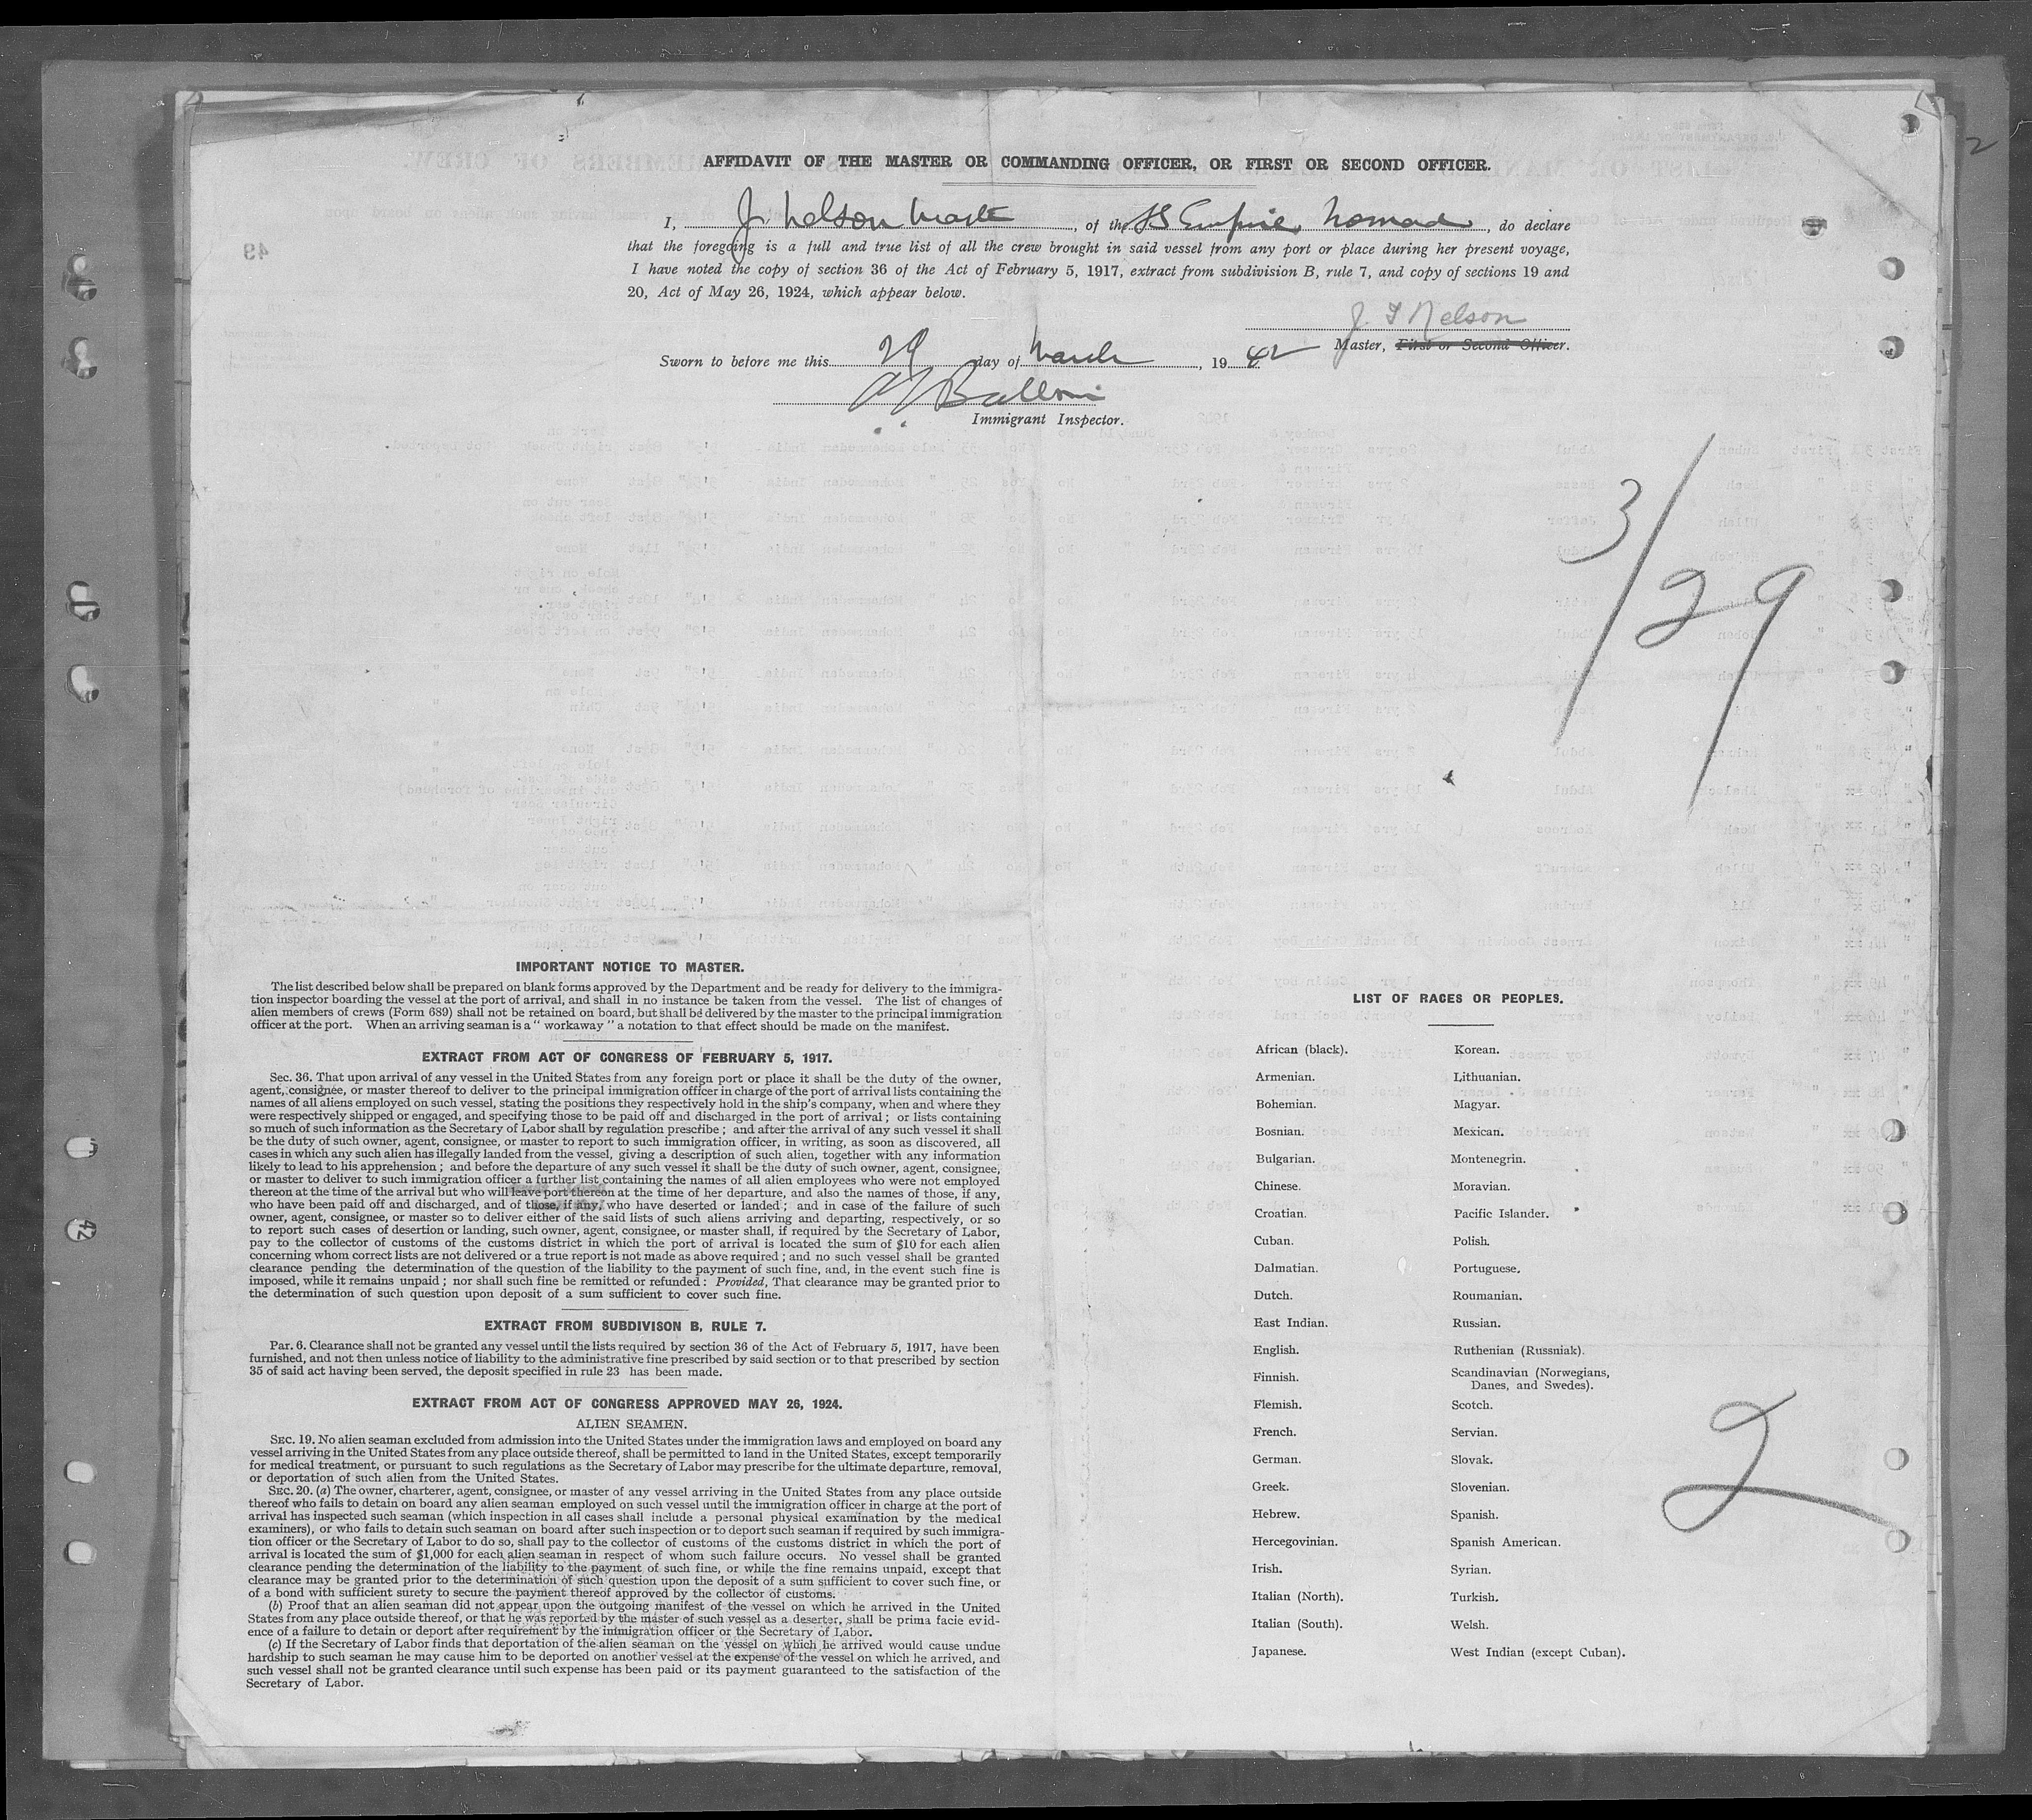 AFFIDAVIT OF THE MASTER OR COMMANDING OFFICER, OR FIRST OR SECOND OFFICER.
I, J. Nelson Master, of the SS Empire Nomad, do declare
that the foregoing is a full and true list of all the crew brought in said vessel from any port or place during her present voyage,
I have noted the copy of section 36 of the Act of February 5, 1917, extract from subdivision B, rule 7, and copy of sections 19 and
20, Act of May 26, 1924, which appear below.
J. F Nelson
Master, First or Second Officer.
Sworn to before me this 29 day of March, 1942
Immigrant Inspector.
49
3/29
2
IMPORTANT NOTICE TO MASTER.
The list described below shall be prepared on blank forms approved by the Department and be ready for delivery to the immigra-
tion inspector boarding the vessel at the port of arrival, and shall in no instance be taken from the vessel. The list of changes of
alien members of crews (Form 689) shall not be retained on board, but shall be delivered by the master to the principal immigration
officer at the port. When an arriving seaman is a " workaway " a notation to that effect should be made on the manifest.
EXTRACT FROM ACT OF CONGRESS OF FEBRUARY 5, 1917.
SEC. 36. That upon arrival of any vessel in the United States from any foreign port or place it shall be the duty of the owner,
agent, consignee, or master thereof to deliver to the principal immigration officer in charge of the port of arrival lists containing the
names of all aliens employed on such vessel, stating the positions they respectively hold in the ship's company, when and where they
were respectively shipped or engaged, and specifying those to be paid off and discharged in the port of arrival ; or lists containing
so much of such information as the Secretary of Labor shall by regulation prescribe ; and after the arrival of any such vessel it shall
be the duty of such owner, agent, consignee, or master to report to such immigration officer, in writing, as soon as discovered, all
cases in which any such alien has illegally landed from the vessel, giving a description of such alien, together with any information
likely to lead to his apprehension ; and before the departure of any such vessel it shall be the duty of such owner, agent, consignee,
or master to deliver to such immigration officer a further list containing the names of all alien employees who were not employed
thereon at the time of the arrival but who will leave port thereon at the time of her departure, and also the names of those, if any,
who have been paid off and discharged, and of those, if any, who have deserted or landed ; and in case of the failure of such
owner, agent, consignee, or master so to deliver either of the said lists of such aliens arriving and departing, respectively, or so
to report such cases of desertion or landing, such owner, agent, consignee, or master shall, if required by the Secretary of Labor,
pay to the collector of customs of the customs district in which the port of arrival is located the sum of $10 for each alien
concerning whom correct lists are not delivered or a true report is not made as above required ; and no such vessel shall be granted
clearance pending the determination of the question of the liability to the payment of such fine, and, in the event such fine is
imposed, while it remains unpaid ; nor shall such fine be remitted or refunded : Provided, That clearance may be granted prior to
the determination of such question upon deposit of a sum sufficient to cover such fine.
EXTRACT FROM SUBDIVISON B, RULE 7.
Par. 6. Clearance shall not be granted any vessel until the lists required by section 36 of the Act of February 5, 1917, have been
furnished, and not then unless notice of liability to the administrative fine prescribed by said section or to that prescribed by section
35 of said act having been served, the deposit specified in rule 23 has been made.
EXTRACT FROM ACT OF CONGRESS APPROVED MAY 26, 1924.
ALIEN SEAMEN.
SEC. 19. No alien seaman excluded from admission into the United States under the immigration laws and employed on board any
vessel arriving in the United States from any place outside thereof, shall be permitted to land in the United States, except temporarily
for medical treatment, or pursuant to such regulations as the Secretary of Labor may prescribe for the ultimate departure, removal,
or deportation of such alien from the United States.
SEC. 20. (a) The owner, charterer, agent, consignee, or master of any vessel arriving in the United States from any place outside
thereof who fails to detain on board any alien seaman employed on such vessel until the immigration officer in charge at the port of
arrival has inspected such seaman (which inspection in all cases shall include a personal physical examination by the medical
examiners), or who fails to detain such seaman on board after such inspection or to deport such seaman if required by such immigra-
tion officer or the Secretary of Labor to do so, shall pay to the collector of customs of the customs district in which the port of
arrival is located the sum of $1,000 for each alien seaman in respect of whom such failure occurs. No vessel shall be granted
clearance pending the determination of the liability to the payment of such fine, or while the fine remains unpaid, except that
clearance may be granted prior to the determination of such question upon the deposit of a sum sufficient to cover such fine, or
of a bond with sufficient surety to secure the payment thereof approved by the collector of customs.
(b) Proof that an alien seaman did not appear upon the outgoing manifest of the vessel on which he arrived in the United
States from any place outside thereof, or that he was reported by the master of such vessel as a deserter, shall be prima facie evid-
ence of a failure to detain or deport after requirement by the immigration officer or the Secretary of Labor.
(c) If the Secretary of Labor finds that deportation of the alien seaman on the vessel on which he arrived would cause undue
hardship to such seaman he may cause him to be deported on another vessel at the expense of the vessel on which he arrived, and
such vessel shall not be granted clearance until such expense has been paid or its payment guaranteed to the satisfaction of the
Secretary of Labor.
LIST OF RACES OR PEOPLES.
African (black). Korean.
Armenian. Lithuanian.
Bohemian. Magyar.
Bosnian. Mexican.
Bulgarian. Montenegrin.
Chinese. Moravian.
Croatian. Pacific Islander.
Cuban. Polish.
Dalmatian. Portuguese.
Dutch. Roumanian.
East Indian. Russian.
English. Ruthenian (Russniak).
Finnish. Scandinavian (Norwegians,
Danes, and Swedes).
Flemish. Scotch.
French. Servian.
German. Slovak.
Greek. Slovenian.
Hebrew. Spanish.
Hercegovinian. Spanish American.
Irish. Syrian.
Italian (North). Turkish.
Italian (South). Welsh.
Japanese. West Indian (except Cuban).
2